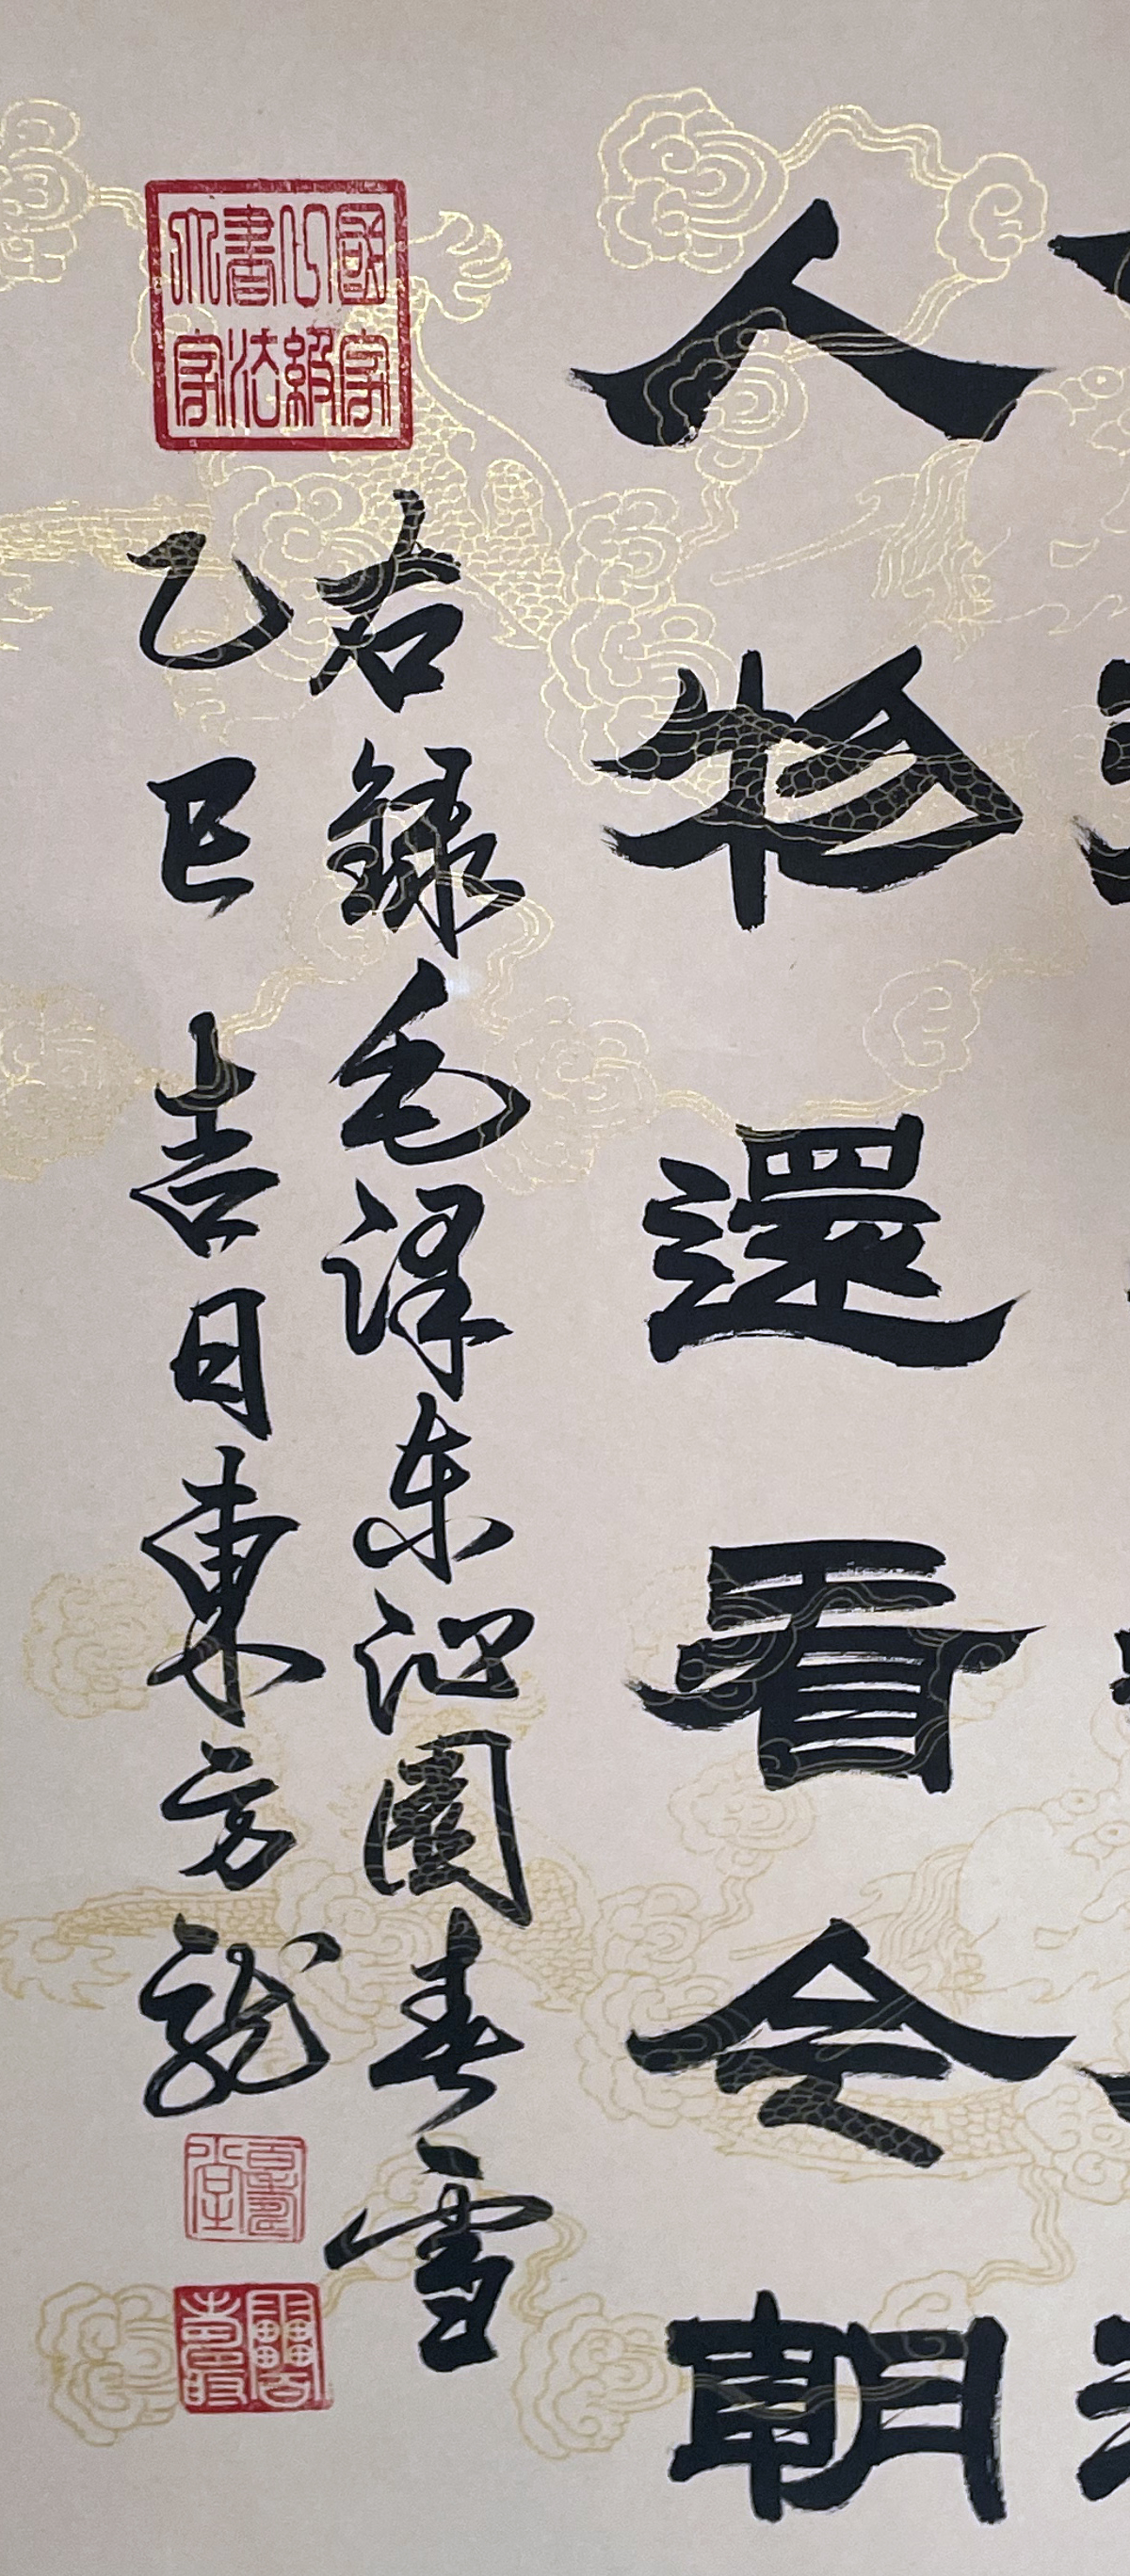 人物還看今朝
右録毛泽东沁園春雪
乙巳吉日東方龍
國家級書法家